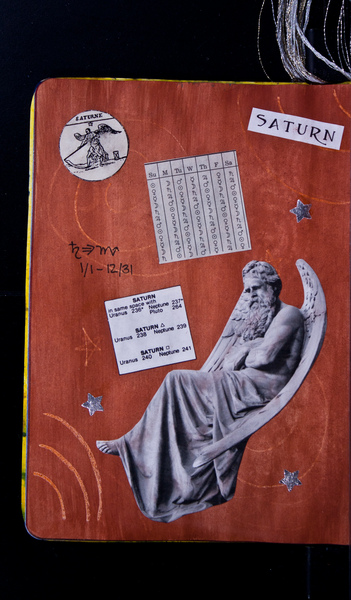 SATURNE
SATURN
Su M Tu W Th F Sa
♄⇒♏
1/1-12/31
SATURN
in same space with
Uranus 236* Neptune 237*
Pluto 264
SATURN △
Uranus 238 Neptune 239
SATURN □
Uranus 240 Neptune 241